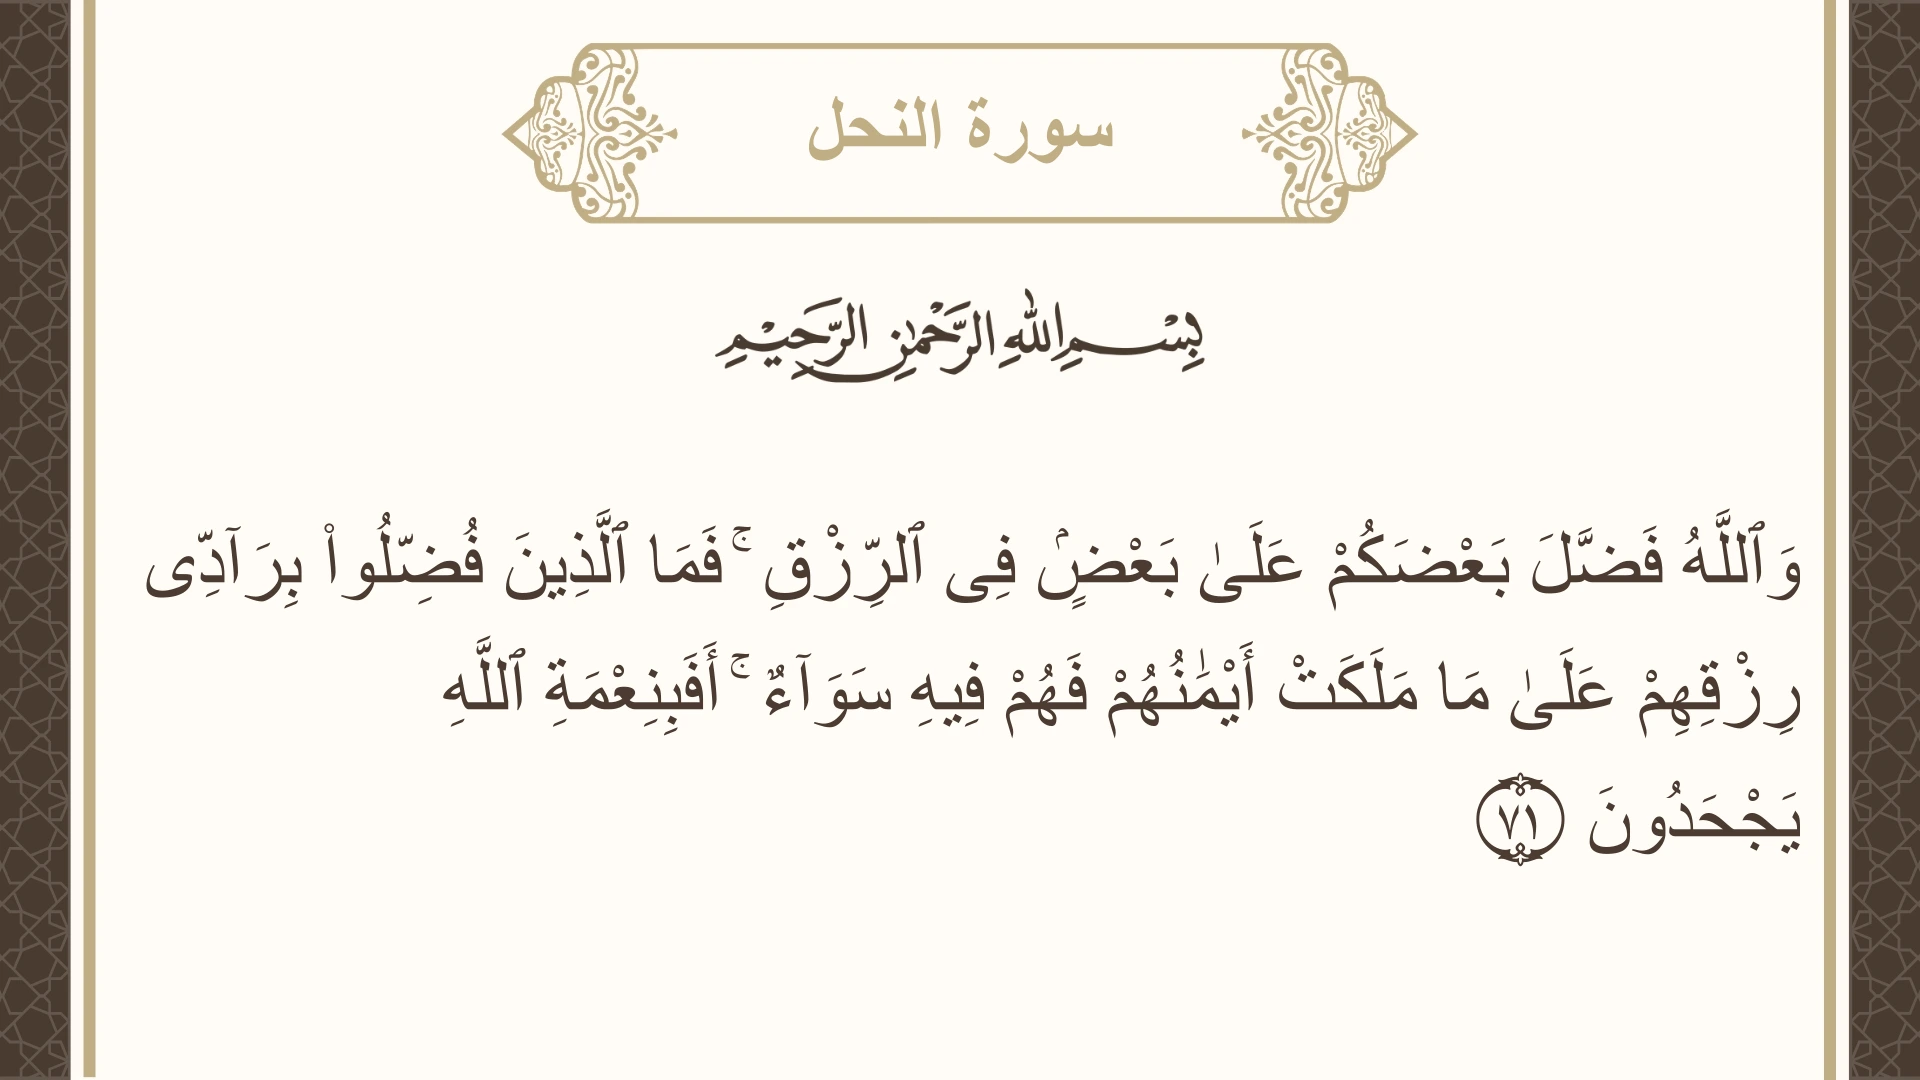 سورة النحل
بِسْمِ اللهِ الرَّحْمٰنِ الرَّحِيمِ
وَٱللَّهُ فَضَّلَ بَعْضَكُمْ عَلَىٰ بَعْضٍۢ فِى ٱلرِّزْقِ ۚ فَمَا ٱلَّذِينَ فُضِّلُوا۟ بِرَآدِّى
رِزْقِهِمْ عَلَىٰ مَا مَلَكَتْ أَيْمَـٰنُهُمْ فَهُمْ فِيهِ سَوَآءٌ ۚ أَفَبِنِعْمَةِ ٱللَّهِ
يَجْحَدُونَ ٧١